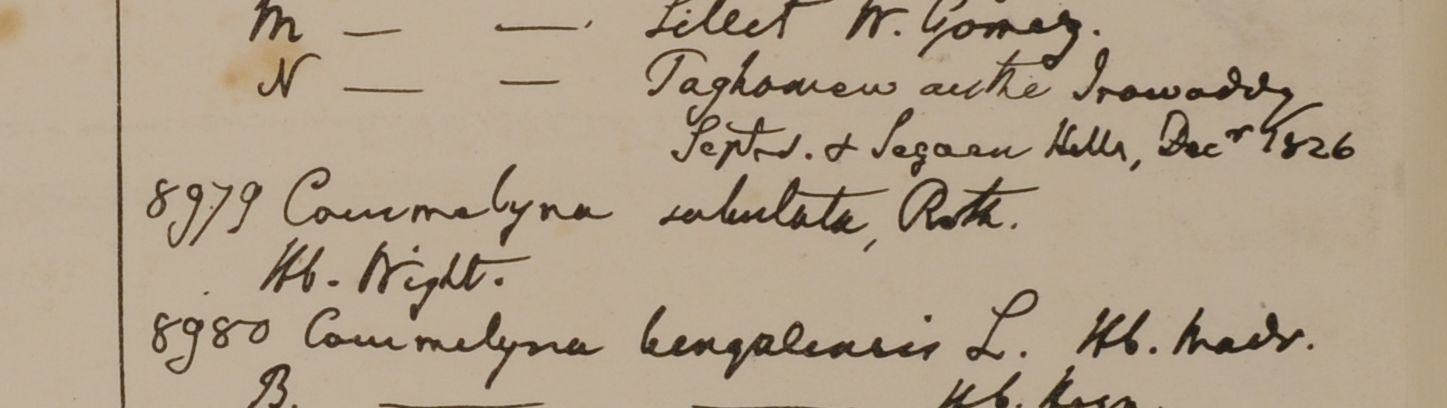 M — — Sillet W. Gomez.
N — — Taghomew on the Irawaddy
Septr. & Segaen Hills, Decr 1826
8979 Commelyna subulata, Roth.
Hb. Wight.
8980 Commelyna bengalensis L. Hb. Madr.
B. — — Hb. Heyn.